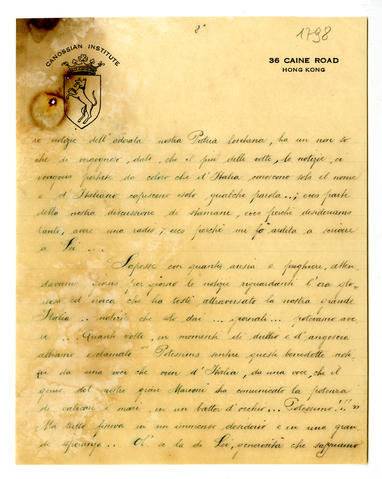 2°
1798
CANOSSIAN INSTITUTE
36 CAINE ROAD
HONG KONG
notizie dell'adorata nostra Patria lontana, ha un non so
che di vergognoso, dato che il più delle volte, le notizie, ci
vengono portate da coloro che d'Italia conoscono solo il nome
e d'Italiano capiscono solo qualche parola...; ecco parte
della nostra discussione di stamane, ecco perchè desideriamo
tanto, avere una radio; ecco perchè mi fo ardita a scrivere
a Lei....
Sapesse con quanta ansia e preghiere, atten
davamo giorno per giorno le notizie riguardanti l'ora
ed eroica che ha testè attraversato la nostra grande
Italia.. notizie che solo dai... giornali... potevamo ave
re... Quante volte, in momenti di dubbio e d'angoscia
abbiamo esclamato "Potessimo sentire queste benedette noti
zie da una voce che viene d'Italia, da una voce, che il
genio del nostro gran Marconi ha comunicato la potenza
di valicare i mari, in un batter d'occhio... Potessimo!!!"
Ma tutto finiva in un immenso desiderio e in una gran
de speranza.. a la di Lei, generosità che sappiamo